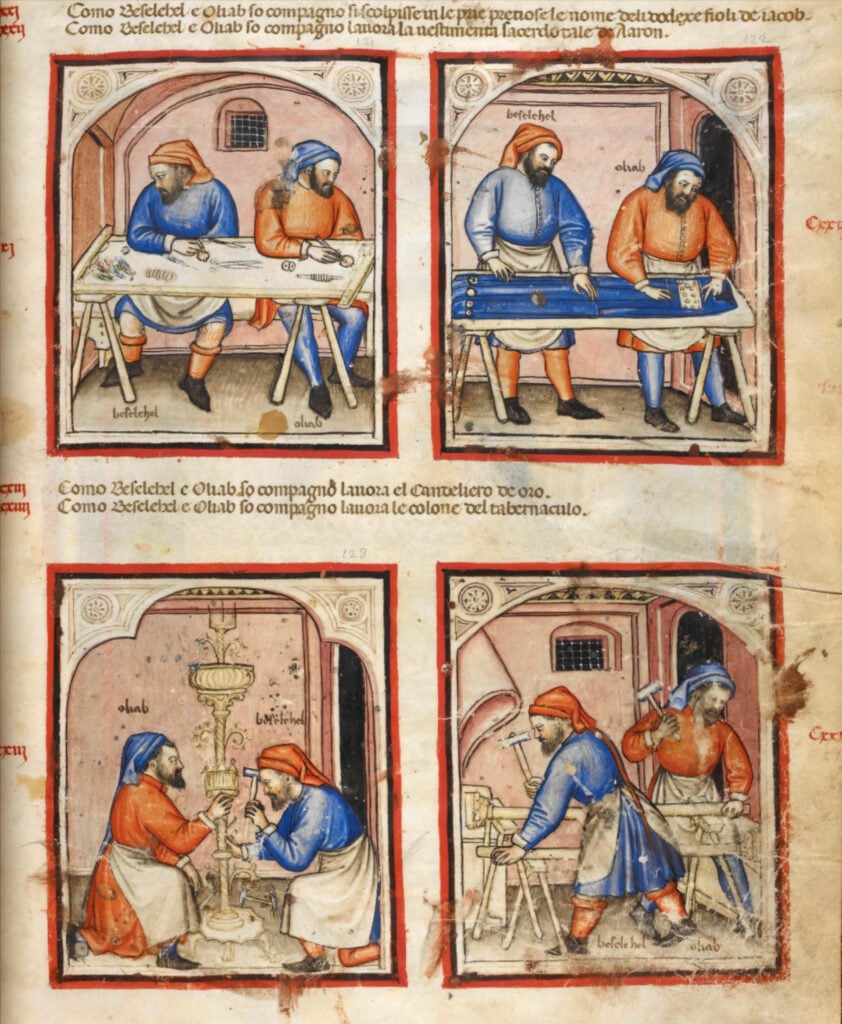 Como Beselehel e Oliab so compagno si scolpisse in le prie pretiose le nome deli dodexe fioli de iacob.
Como Beselehel e Oliab so compagno lauora la uestimenta sacerdotale de Aaron.
121
122
beselehel
oliab
beselehel
oliab
Como Beselehel e Oliab so compagno lauora el Candeliero de oro.
Como Beselehel e Oliab so compagno lauora le colone del tabernaculo.
123
oliab
beselehel
beselehel
oliab